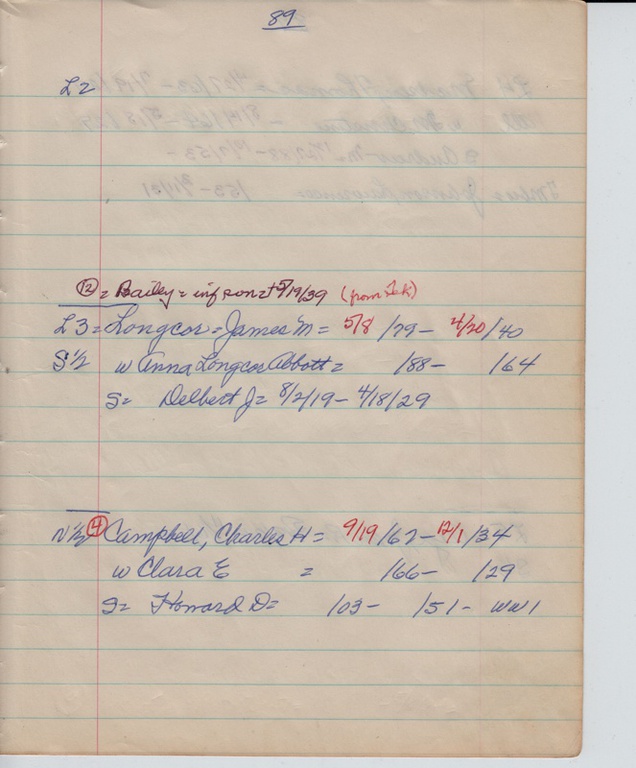 89
L2
(12) = Bailey = inf son = + 5/19/39 (from S&K)
L3 = Longcor = James M = 5/8 /79 - 4/20/40
S 1/2 w Anna Longcor Abbott = /88- /64
S= Delbert J= 8/2/19- 4/18/29
N 1/2 (4) Campbell, Charles H = 9/19 /67- 12/1 /34
w Clara E = /66- /29
S= Howard D= /03- /51- WW1